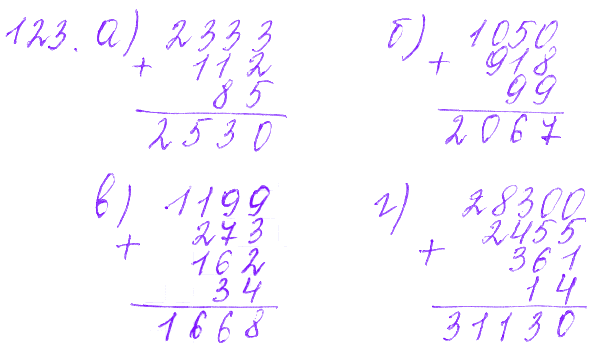 123. а) 2333
+ 112
85
2530
б) 1050
+ 918
99
2067
в) 1199
+ 273
162
34
1668
г) 28300
2455
+ 361
14
31130